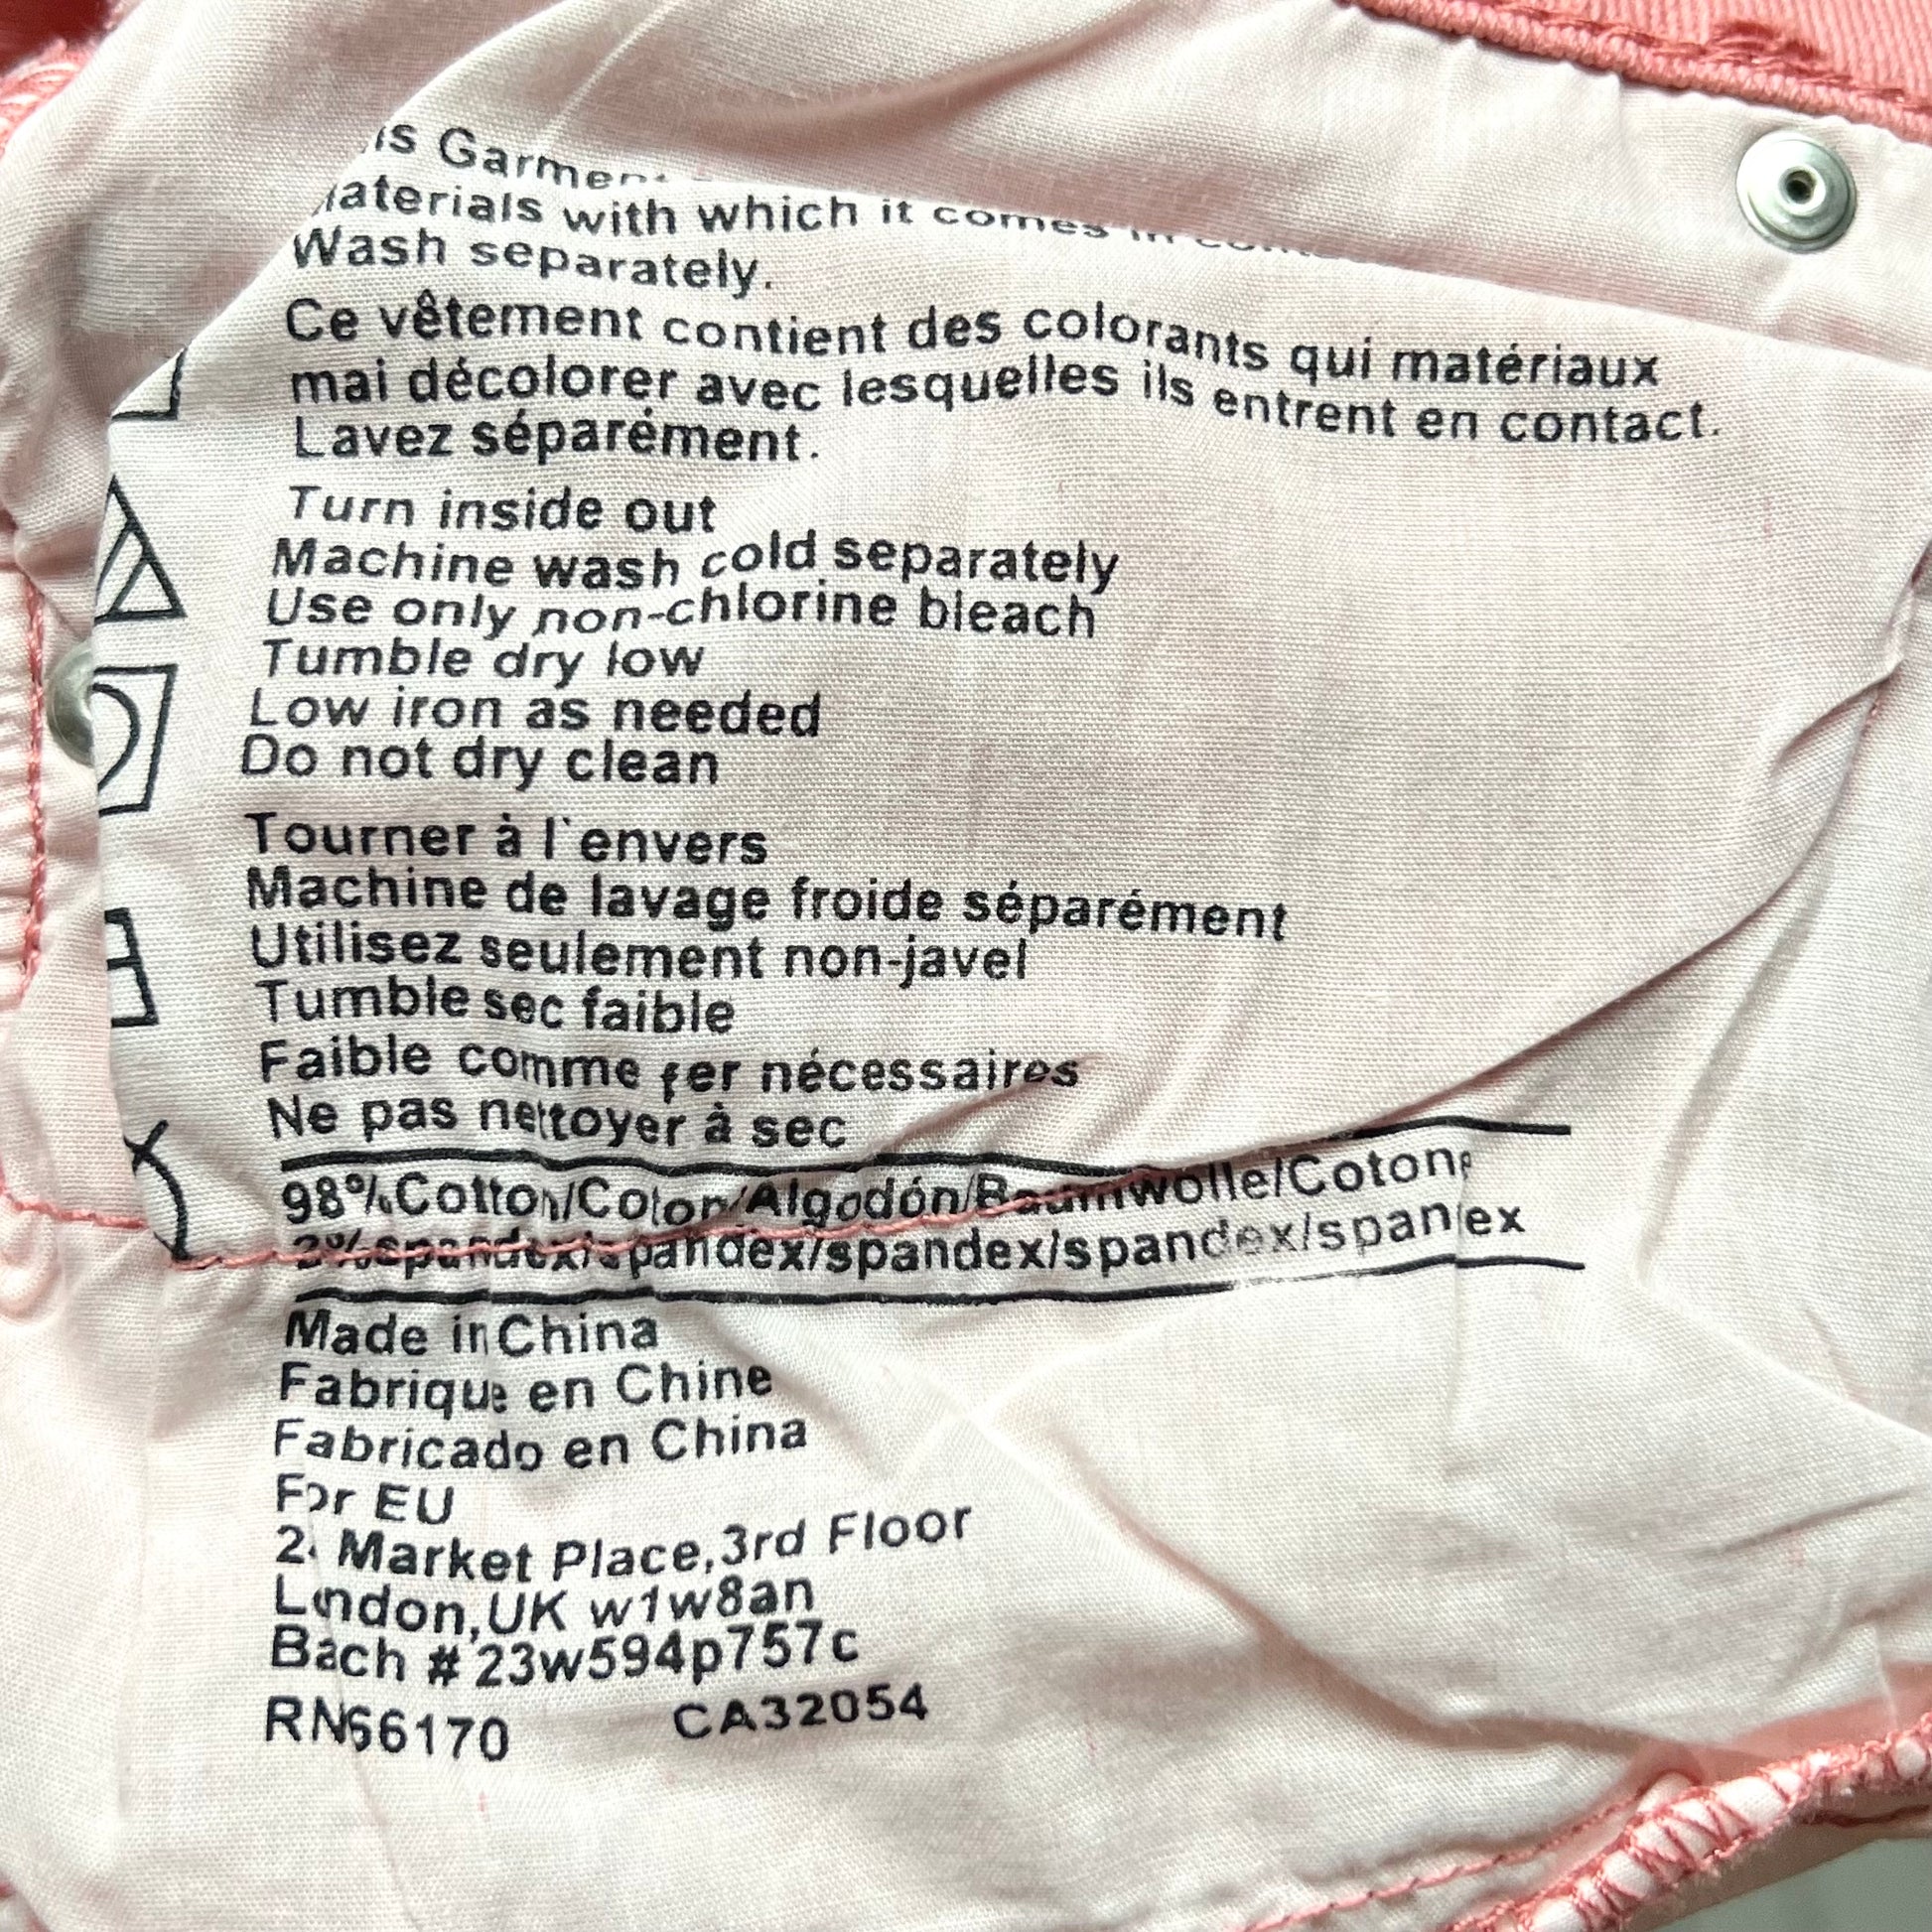 is Garment
aterials with which it comes in
Wash separately.
Ce vêtement contient des colorants qui matériaux
mai décolorer avec lesquelles ils entrent en contact.
Lavez séparément.
Turn inside out
Machine wash cold separately
Use only non-chlorine bleach
Tumble dry low
Low iron as needed
Do not dry clean
Tourner à l'envers
Machine de lavage froide séparément
Utilisez seulement non-javel
Tumble sec faible
Faible comme fer nécessaires
Ne pas nettoyer à sec
98%Cotton/Coton/Algodón/Baumwolle/Cotone
2%spandex/spandex/spandex/spandex/spandex
Made in China
Fabrique en Chine
Fabricado en China
For EU
Market Place,3rd Floor
London,UK w1w8an
Bach # 23w594p757c
RN66170 CA32054